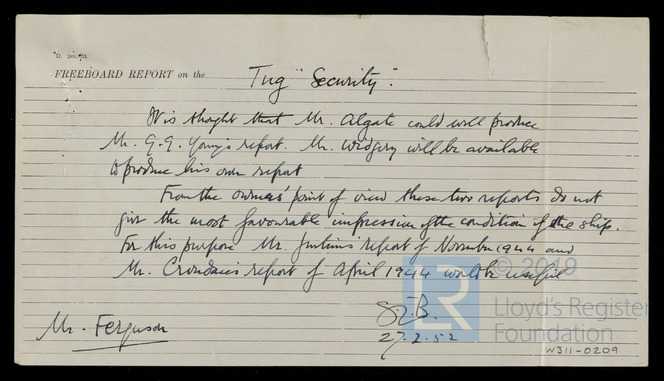 FREEBOARD REPORT on the Tug "Security".
It is thought that Mr. Algate could well produce
Mr. G.G. Young's report. Mr. Widgery will be available
to produce his own report
From the owners' point of view these two reports do not
give the most favourable impression of the condition of the ship.
For this purpose Mr. Jenkins report of November 1944 and
Mr. report of April 1944 would be useful
27.2.52
Mr. Ferguson
© 2019
LR
Lloyd's Register
Foundation
W311-0209